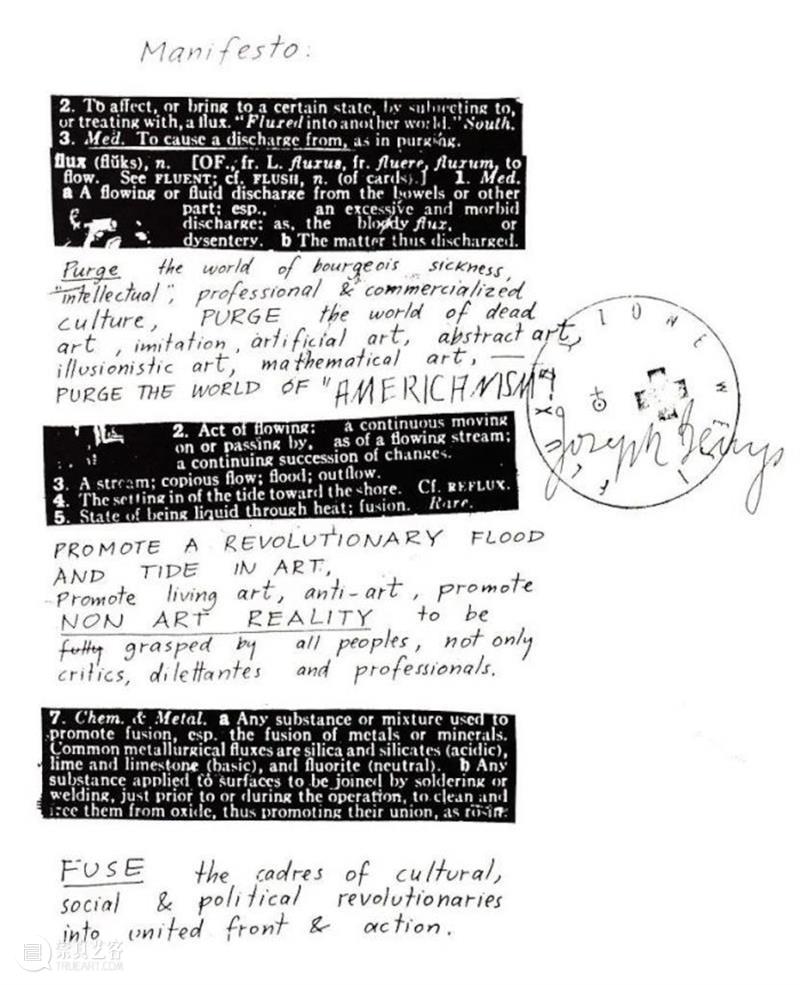 Manifesto:
2. To affect, or bring to a certain state, by subjecting to,
or treating with, a flux. "Fluxed into another world." South.
3. Med. To cause a discharge from, as in purging.
flux (flŭks), n. [OF., fr. L. fluxus, fr. fluere, fluxum, to
flow. See FLUENT; cf. FLUSH, n. (of cards).] 1. Med.
a A flowing or fluid discharge from the bowels or other
part; esp., an excessive and morbid
discharge: as, the bloody flux, or
dysentery. b The matter thus discharged.
Purge the world of bourgeois sickness,
"intellectual", professional & commercialized
culture, PURGE the world of dead
art, imitation, artificial art, abstract art,
illusionistic art, mathematical art, —
PURGE THE WORLD OF "AMERICANISM"!
Joseph Beuys
2. Act of flowing: a continuous moving
on or passing by, as of a flowing stream;
a continuing succession of changes.
3. A stream; copious flow; flood; outflow.
4. The setting in of the tide toward the shore. Cf. REFLUX.
5. State of being liquid through heat; fusion. Rare.
PROMOTE A REVOLUTIONARY FLOOD
AND TIDE IN ART,
Promote living art, anti-art, promote
NON ART REALITY to be
fully grasped by all peoples, not only
critics, dilettantes and professionals.
7. Chem. & Metal. a Any substance or mixture used to
promote fusion, esp. the fusion of metals or minerals.
Common metallurgical fluxes are silica and silicates (acidic),
lime and limestone (basic), and fluorite (neutral). b Any
substance applied to surfaces to be joined by soldering or
welding, just prior to or during the operation, to clean and
free them from oxide, thus promoting their union, as rosin.
FUSE the cadres of cultural,
social & political revolutionaries
into united front & action.
崇真艺客
TRUEART.COM